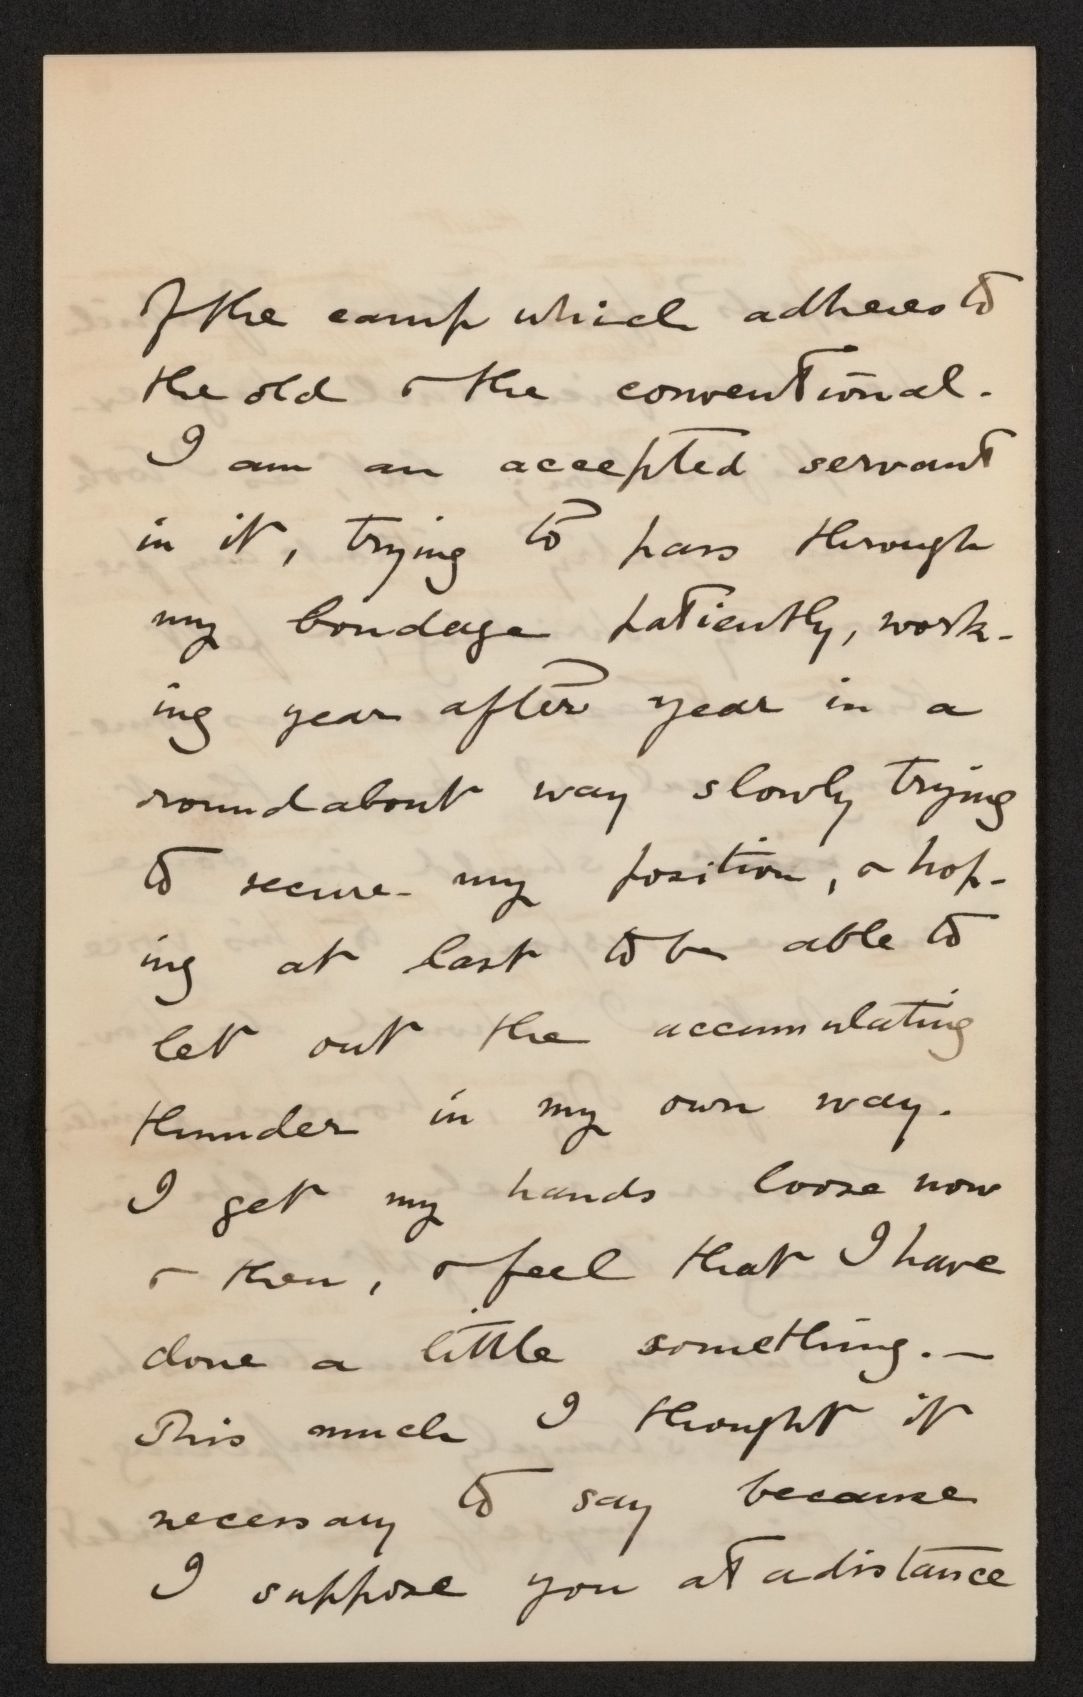 of the camp which adheres to
the old & the conventional.
I am an accepted servant
in it, trying to pass through
my bondage patiently, work-
ing year after year in a
roundabout way slowly trying
to secure my position, & hop-
ing at last to be able to
let out the accumulating
thunder in my own way.
I get my hands loose now
& then, & feel that I have
done a little something. —
This much I thought it
necessary to say because
I suppose you at a distance